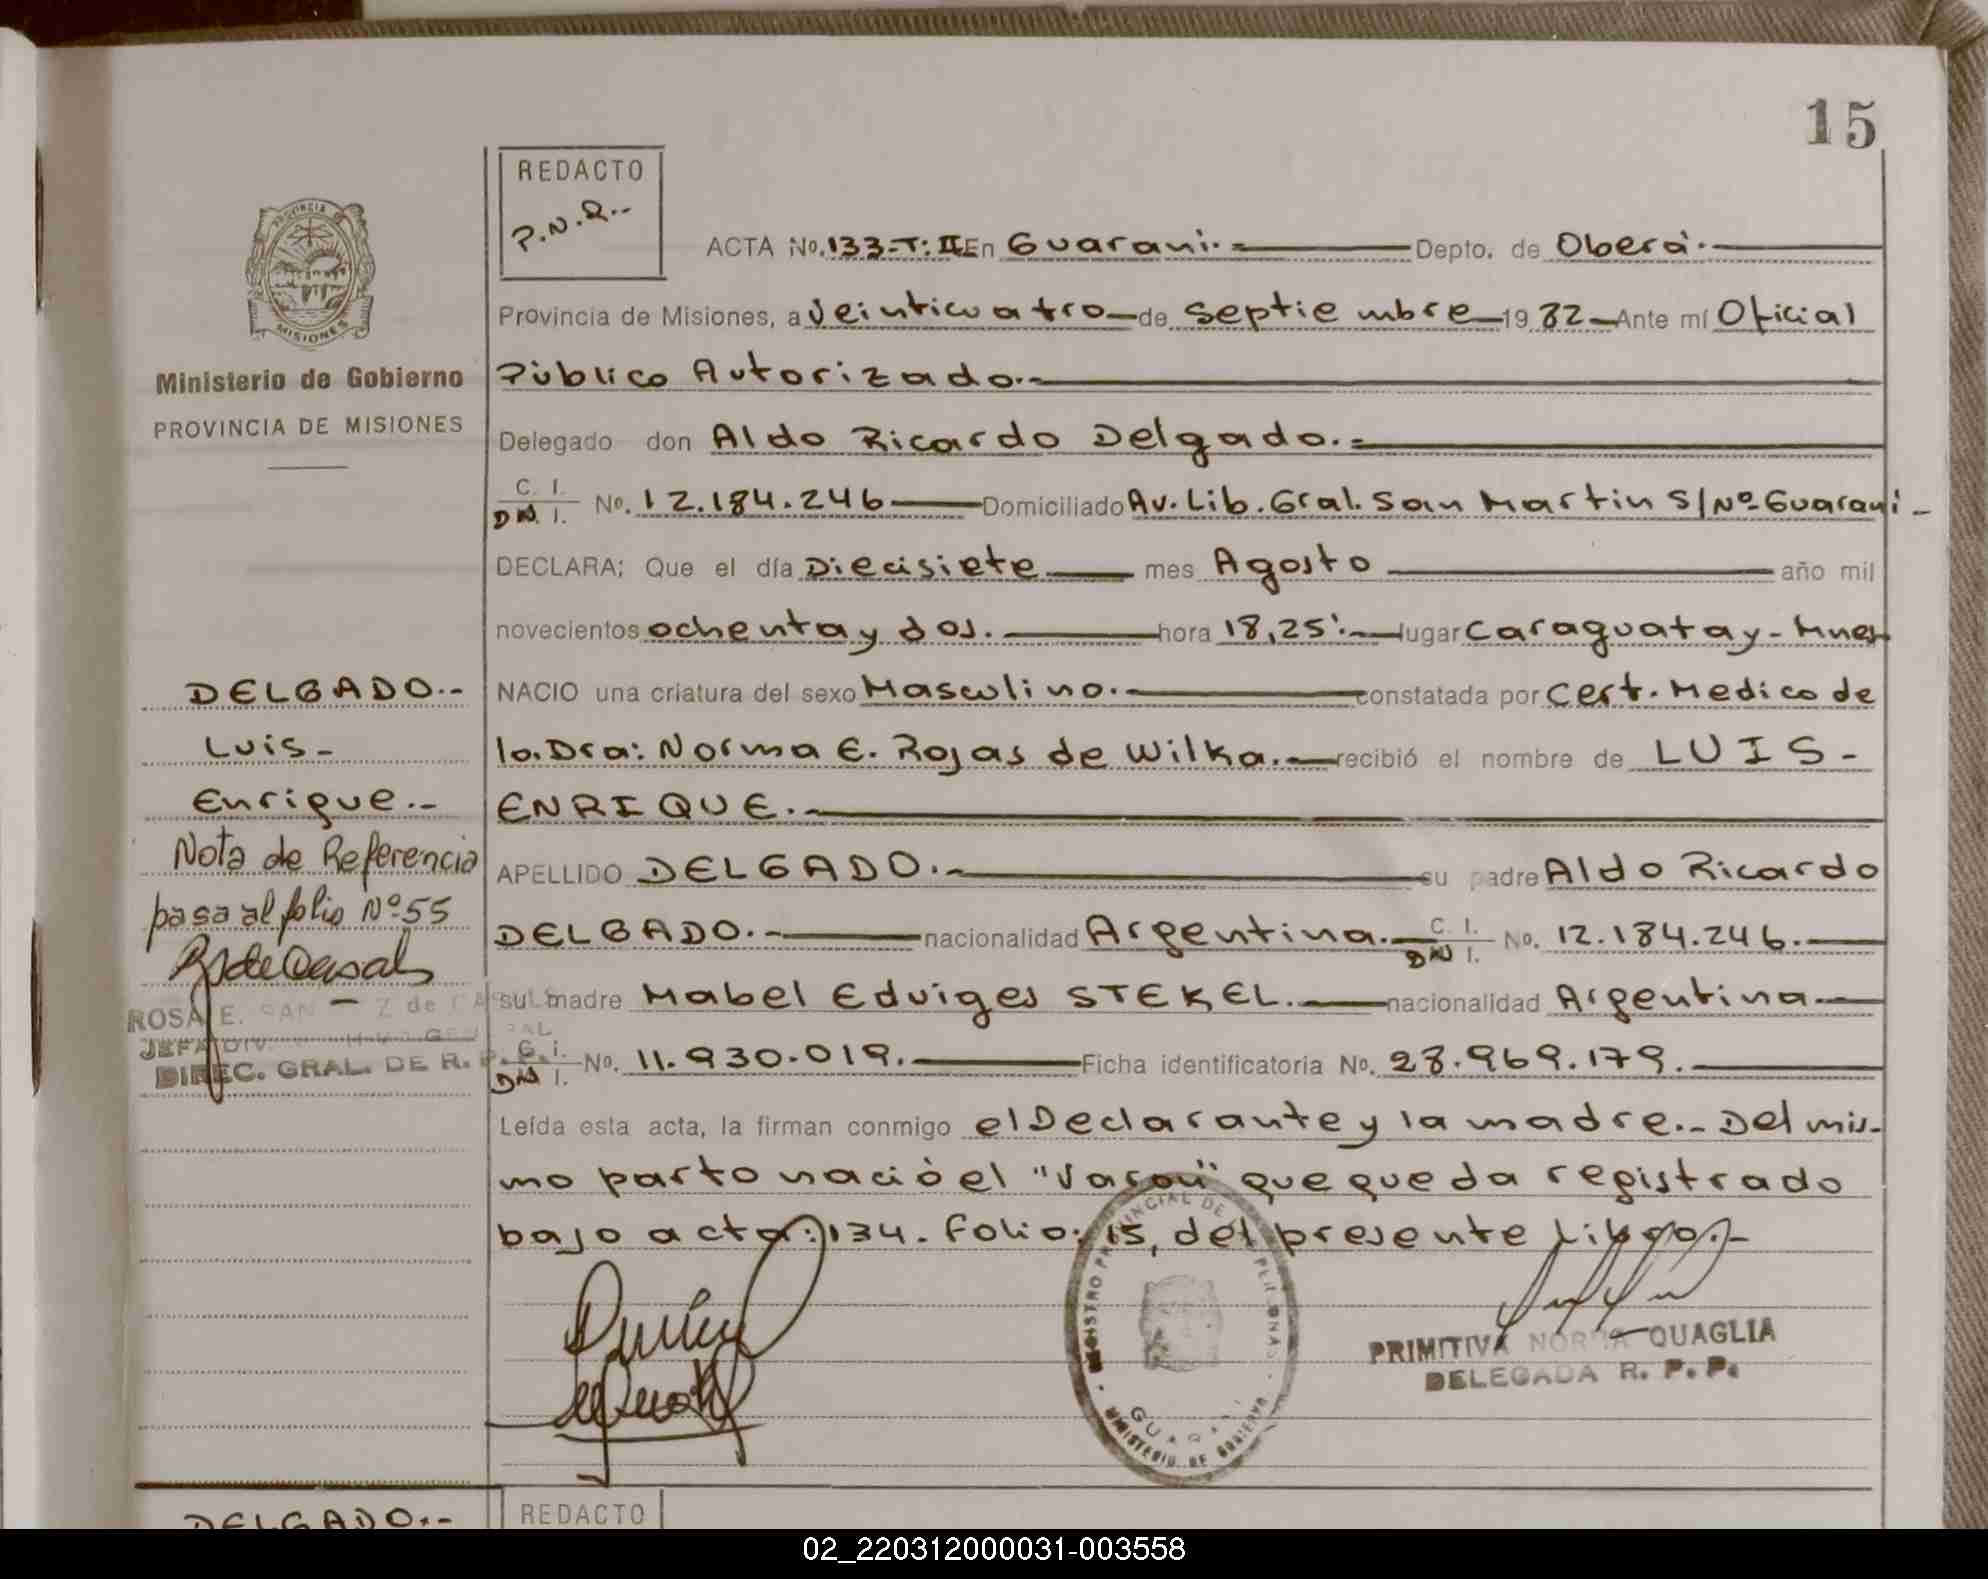 15
REDACTO
P.N.Q.-
ACTA No. 133-T: II En Guarani.= Depto. de Oberá.-
Provincia de Misiones, a Veinticuatro de Septiembre 19 82 Ante mí Oficial
Público Autorizado.-
Delegado don Aldo Ricardo Delgado.=
C. I.
DN. I. No. 12.184.246 Domiciliado Av. Lib. Gral. San Martin S/Nº Guarani-
DECLARA; Que el día Diecisiete mes Agosto año mil
novecientos ochenta y dos. hora 18,25'.- lugar Caraguatay - Mnes
NACIO una criatura del sexo Masculino.- constatada por Cert. Medico de
la. Dra: Norma E. Rojas de Wilka.- recibió el nombre de LUIS-
ENRIQUE.-
APELLIDO DELGADO.- su padre Aldo Ricardo
DELGADO.- nacionalidad Argentina.- C. I. DN I. No. 12.184.246.-
su madre Mabel Eduiges STEKEL.- nacionalidad Argentina-
C. I. DN I. No. 11.930.019.- Ficha identificatoria No. 28.969.179.-
Leída esta acta, la firman conmigo el Declarante y la madre.- Del mis-
mo parto nació el "Varon" que queda registrado
bajo acta: 134. Folio: 15, del presente Libro.-
PROVINCIA DE
MISIONES
Ministerio de Gobierno
PROVINCIA DE MISIONES
DELGADO.-
Luis-
Enrique.-
Nota de Referencia
pasa al folio Nº 55
ROSA E. de
JEFA DIV.
DIREC. GRAL. DE R. P.
REGISTRO PROVINCIAL DE
GUARANI
MINISTERIO DE GOBIERNO
PRIMITIVA NORMA QUAGLIA
DELEGADA R. P. P.
DELGADO.-
REDACTO
02_220312000031-003558